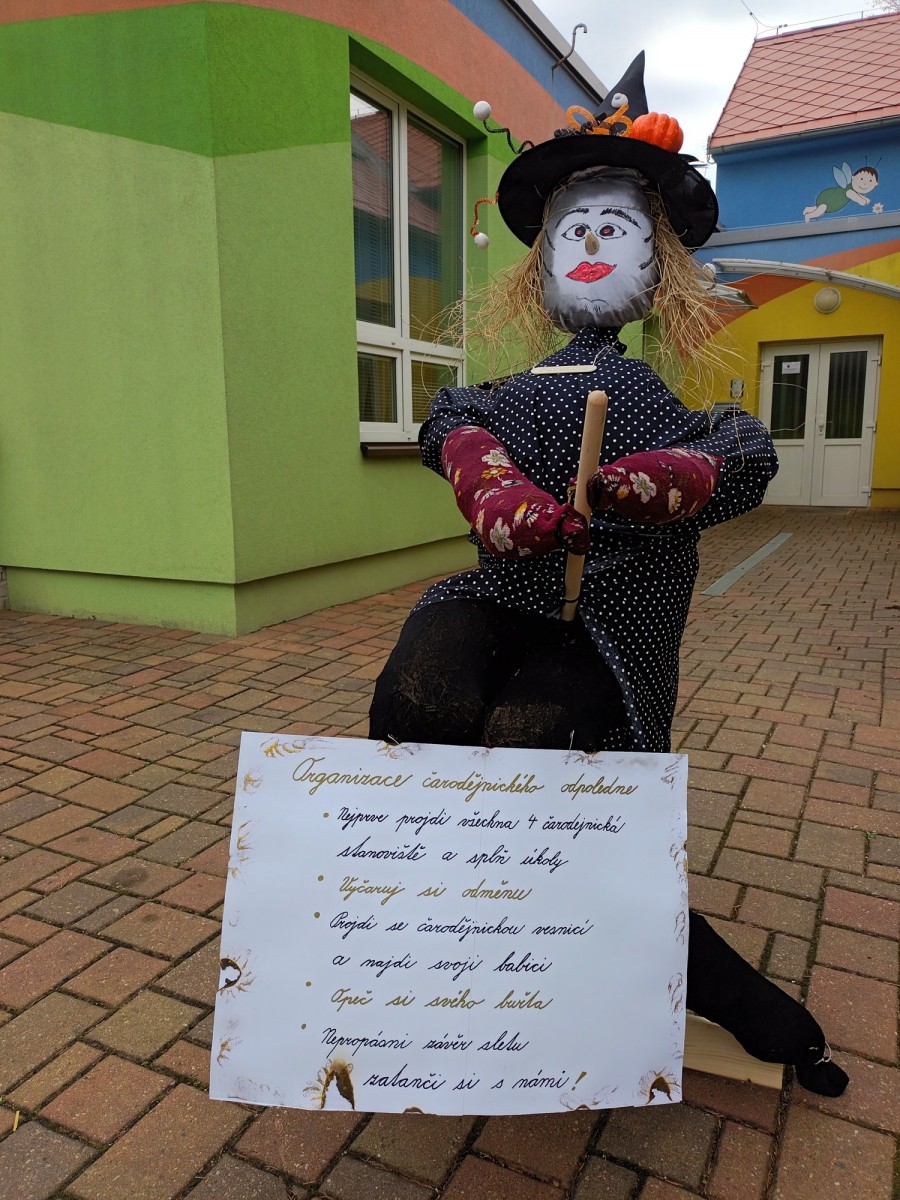 Organizace čarodějnického odpoledne
• Nejprve projdi všechna 4 čarodejnická
stanoviště a splň úkoly
• Vyčaruj si odměnu
• Projdi se čarodějnickou vesnicí
a najdi svoji babici
• Opeč si svého buřta
• Nepropásni závěr sletu
zatanči si s námi!